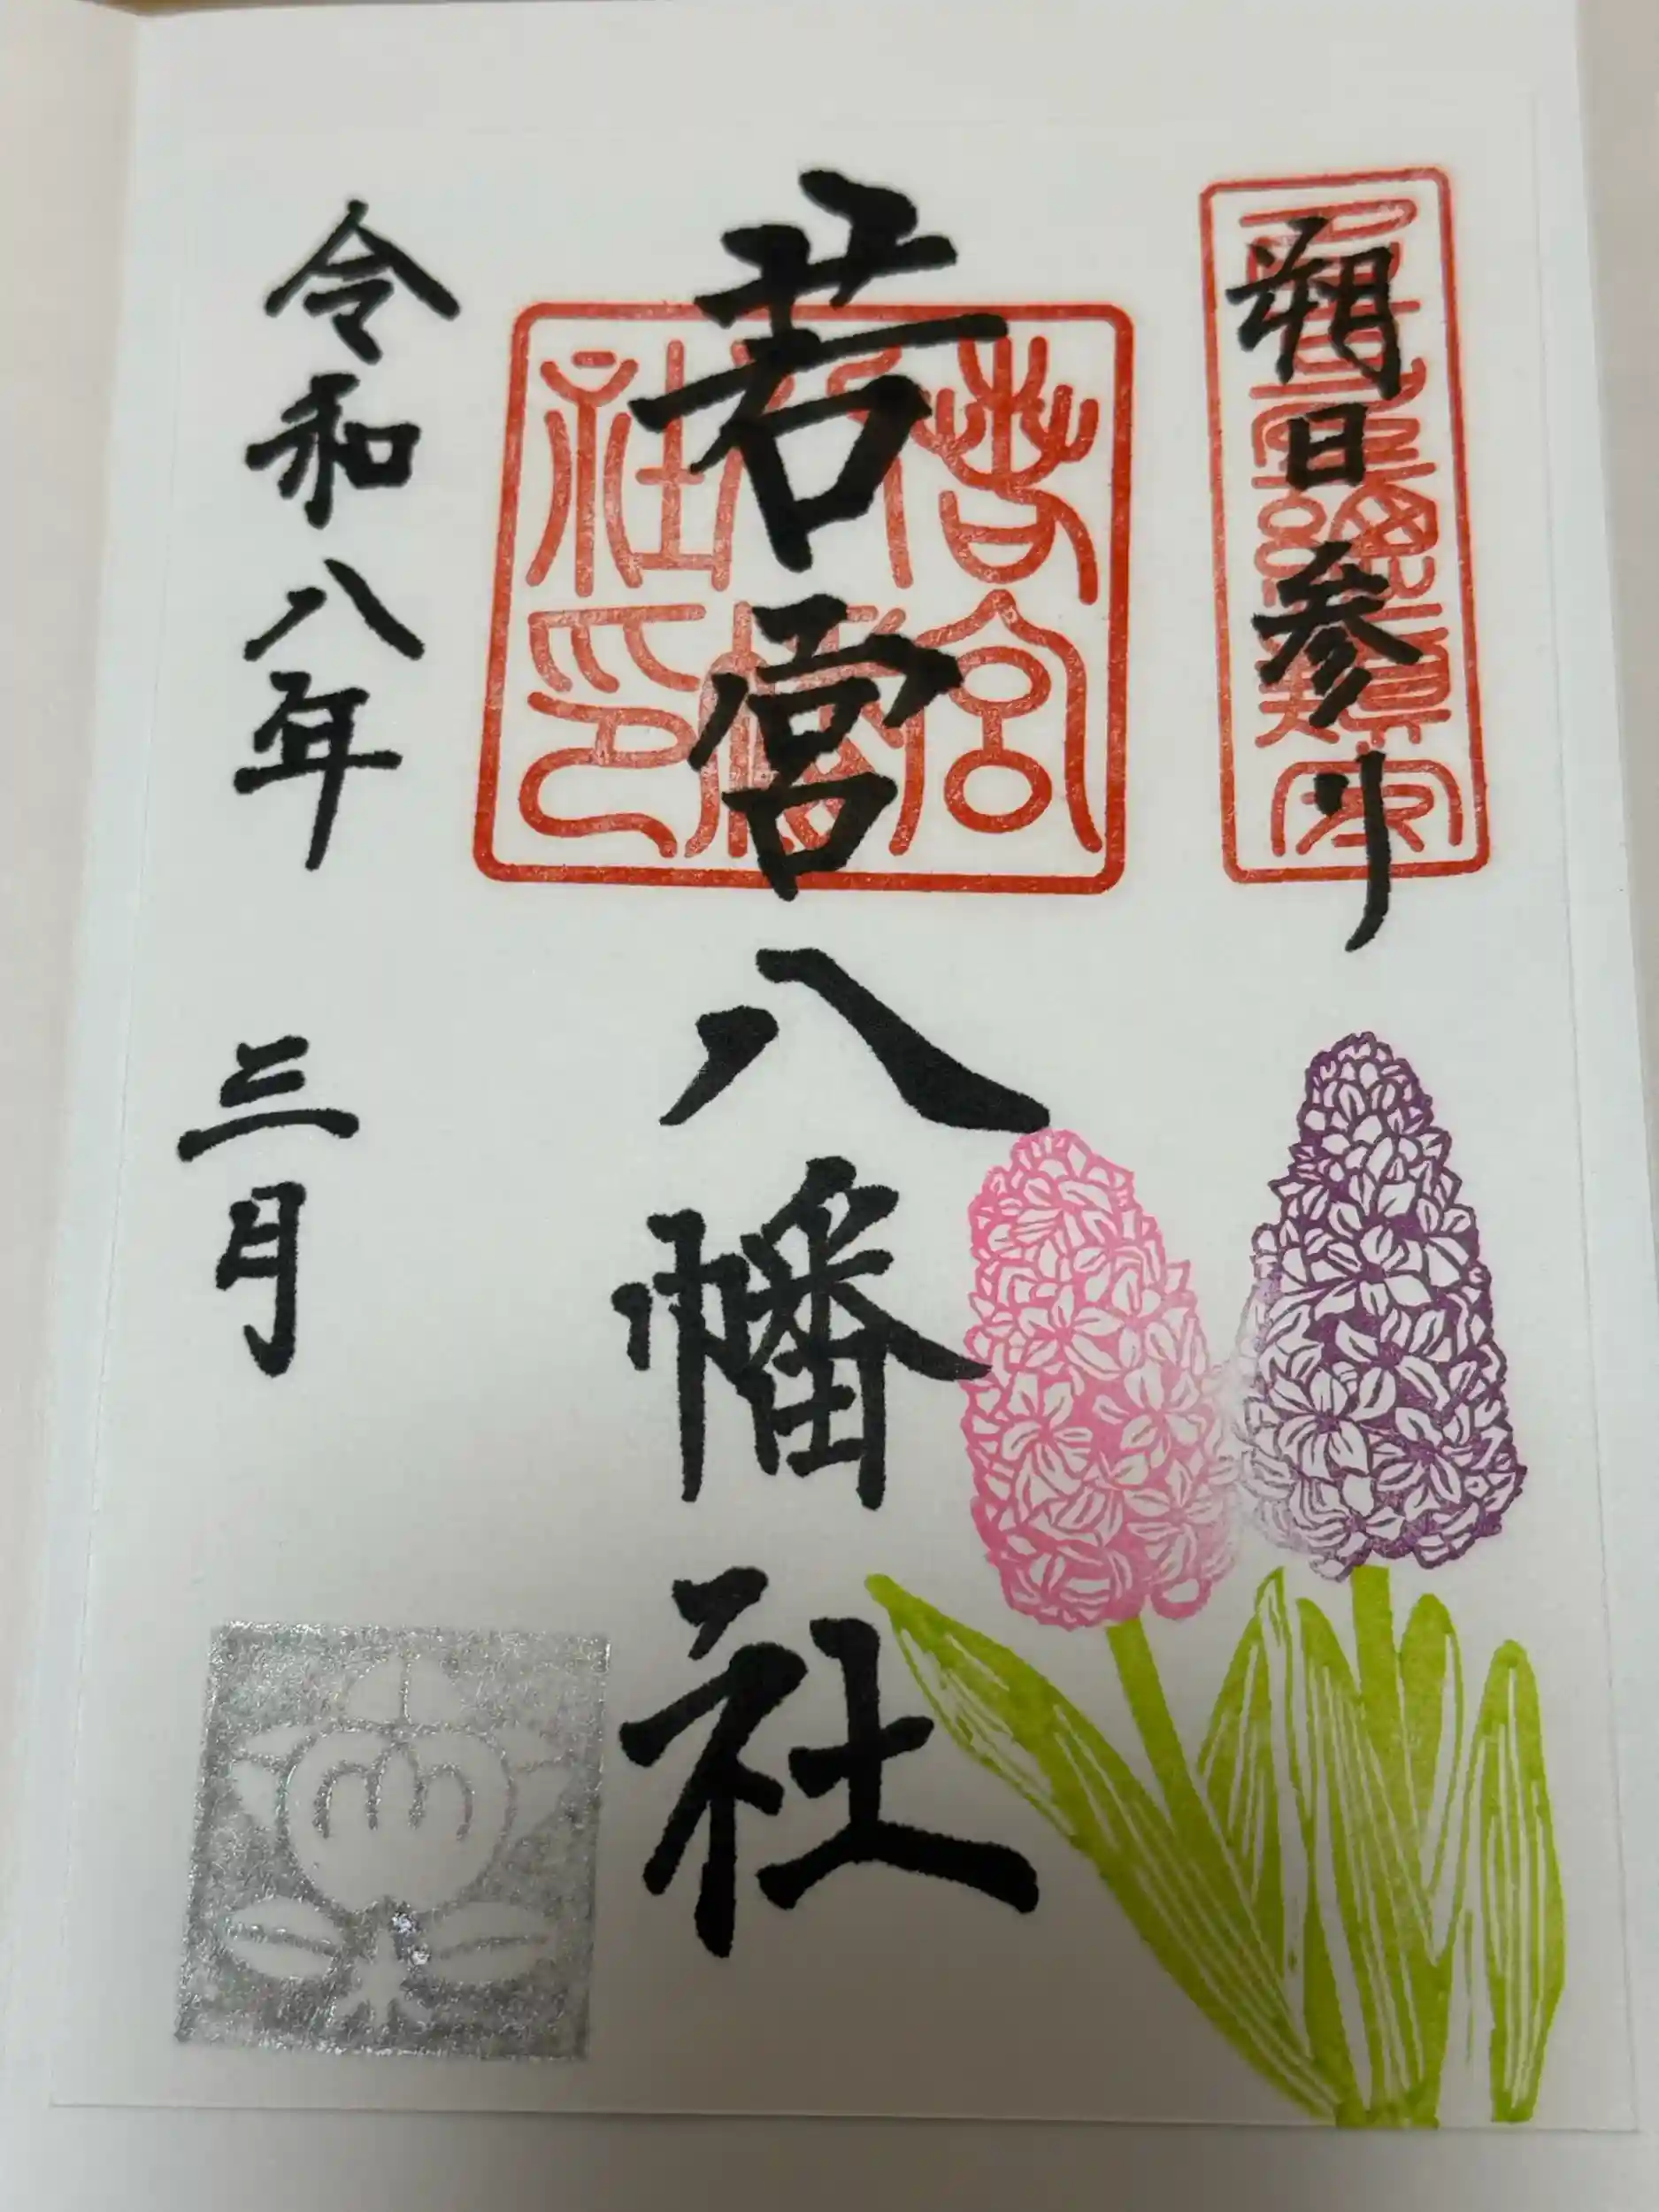 朔日参り
若宮八幡社
若宮八幡社印
令和八年
三月